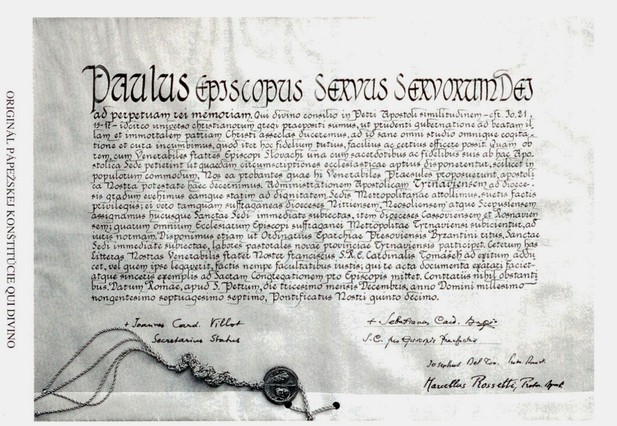 ORIGINÁL PÁPEŽSKEJ KONŠTITÚCIE QUI DIVINO
PAULUS EPISCOPUS SERVUS SERVORUM DEI
ad perpetuam rei memoriam. Qui divino consilio in Petri Apostoli similitudinem - cfr. Io. 21,
15-17 - idcirco universo christianorum gregi praepositi sumus, ut prudenti gubernatione ad beatam il-
lam et immortalem patriam Christi asseclas duceremus, ad id sane omni studio omnique cogita-
tione et cura incumbimus, quod iter hoc fidelium tutius, facilius ac certius efficere possit. Quam ob
rem, cum Venerabiles Fratres Episcopi Slovachi una cum sacerdotibus ac fidelibus suis ab hac Apo-
stolica Sede petierint ut quaedam circumscriptiones ecclesiasticae aptius disponerentur, scilicet in
populorum commodum, Nos ea probantes quae hi Venerabiles Praesules proposuerunt, apostoli-
ca Nostra potestate haec decernimus. Administrationem Apostolicam Tyrnaviensem ad dioece-
sis gradum evehimus eamque statim ad dignitatem Sedis Metropolitanae attollimus, suetis factis
privilegiis; ei vero tamquam suffraganeas dioeceses Nitriensem, Neosoliensem atque Scepusiensem
assignamus hucusque Sanctae Sedi immediate subiectas, item dioeceses Cassoviensem et Rosnavien
sem; quarum omnium Ecclesiarum Episcopi suffraganei Metropolitae Tyrnaviensi subicientur, ad
iuris normam. Disponimus etiam ut Ordinarius Eparchiae Presoviensis Byzantini ritus, Sanctae
Sedi immediate subiectae, labores pastorales novae provinciae Tyrnaviensis participet. Ceterum has
Litteras Nostras Venerabilis Frater Noster Franciscus S.R.E. Cardinalis Tomášek ad exitum addu
cet, vel quem ipse legaverit, factis nempe facultatibus iustis; qui re acta documenta exarari faciet-
atque sinceris exemplis ad Sacram Congregationem pro Episcopis mittet. Contrariis nihil obstanti
bus. Datum Romae, apud S. Petrum, die tricesimo mensis Decembris, anno Domini millesimo
nongentesimo septuagesimo septimo, Pontificatus Nostri quinto decimo.
+ Ioannes Card. Villot
Secretarius Status
+ Sebastianus Card. Baggio
S.C. pro Episcopis Praefectus
Josephus Del Ton, Proton. Apost.
Marcellus Rossetti, Proton. Apost.